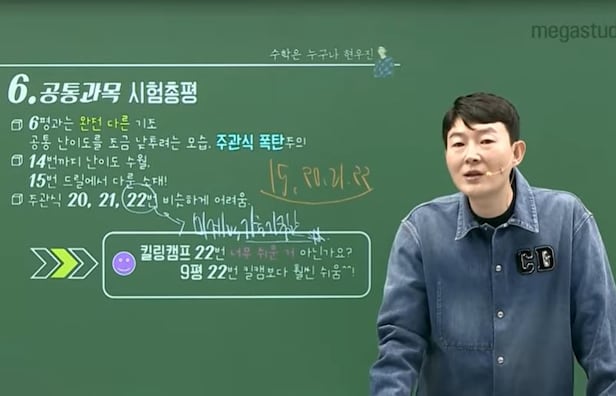 megastud
수학은 누구나 현우진
6.공통과목 시험총평
6평과는 완전 다른 기조
공통 난이도를 조금 낮추려는 모습, 주관식 폭탄주의
14번까지 난이도 수월,
15번 드릴에서 다룬 소재!
15, 20, 21, 22
주관식 20, 21, 22번 비슷하게 어려움
킬링캠프 22번 너무 쉬운 거 아닌가요?
9평 22번 킬캠보다 훨씬 쉬움^^!
CD